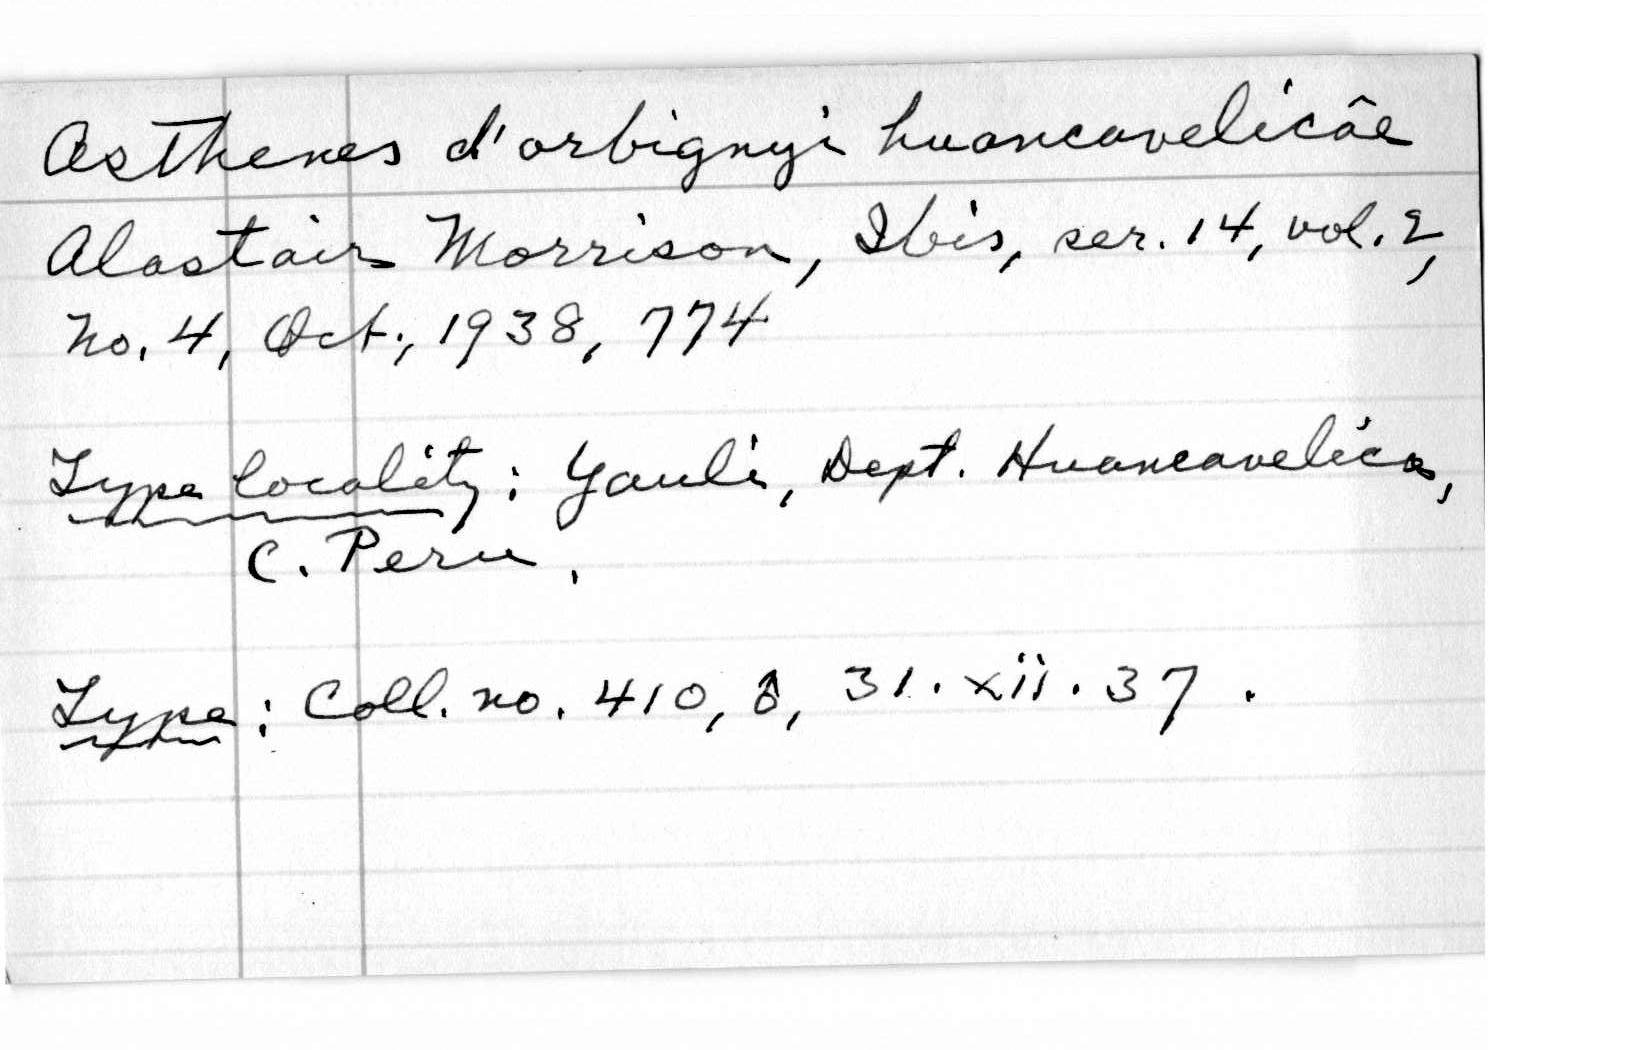 Asthenes d'orbignyi huancavelicâe
Alastair Morrison, Ibis, ser. 14, vol. 2,
no. 4, Oct., 1938, 774
Type locality: Yauli, Dept. Huancavelica,
C. Peru.
Type: Coll. no. 410, ♂, 31.xii.37.